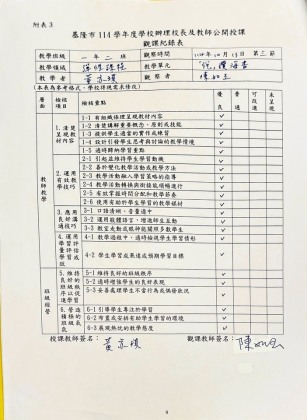 附表 3
基隆市 114 學年度學校辦理校長及教師公開授課
觀課紀錄表
教學班級 一年二班 觀察時間 114年10月13日 第三節
教學領域 教學單元
教學者 觀察者
(本表為參考格式,學校得視需求修改)
層面 檢核項目 檢核重點 優良 普通 可改進 未呈現
教師教學
1.清楚呈現教材內容
1-1 有組織條理呈現教材內容
1-2 清楚講解重要概念、原則或技能
1-3 提供學生適當的實作或練習
1-4 設計引發學生思考與討論的教學情境
1-5 適時歸納學習重點
2.運用有效教學技巧
2-1 引起並維持學生學習動機
2-2 善於變化教學活動或教學方法
2-3 教學活動融入學習策略的指導
2-4 教學活動轉換與銜接能順暢進行
2-5 有效掌握時間分配和教學節奏
2-6 使用有助於學生學習的教學媒材
3.應用良好溝通技巧
3-1 口語清晰、音量適中
3-2 運用肢體語言,增進師生互動
3-3 教室走動或眼神能關照多數學生
4.運用學習評量評估學習成效
4-1 教學過程中,適時檢視學生學習情形
4-2 學生學習成果達成預期學習目標
班級經營
5.維持良好的班級秩序以促進學習
5-1 維持良好的班級秩序
5-2 適時增強學生的良好表現
5-3 妥善處理學生不當行為或偶發狀況
6.營造積極的班級氣氛
6-1 引導學生專注於學習
6-2 布置或安排有助學生學習的環境
6-3 展現熱忱的教學態度
授課教師簽名: 觀課教師簽名: